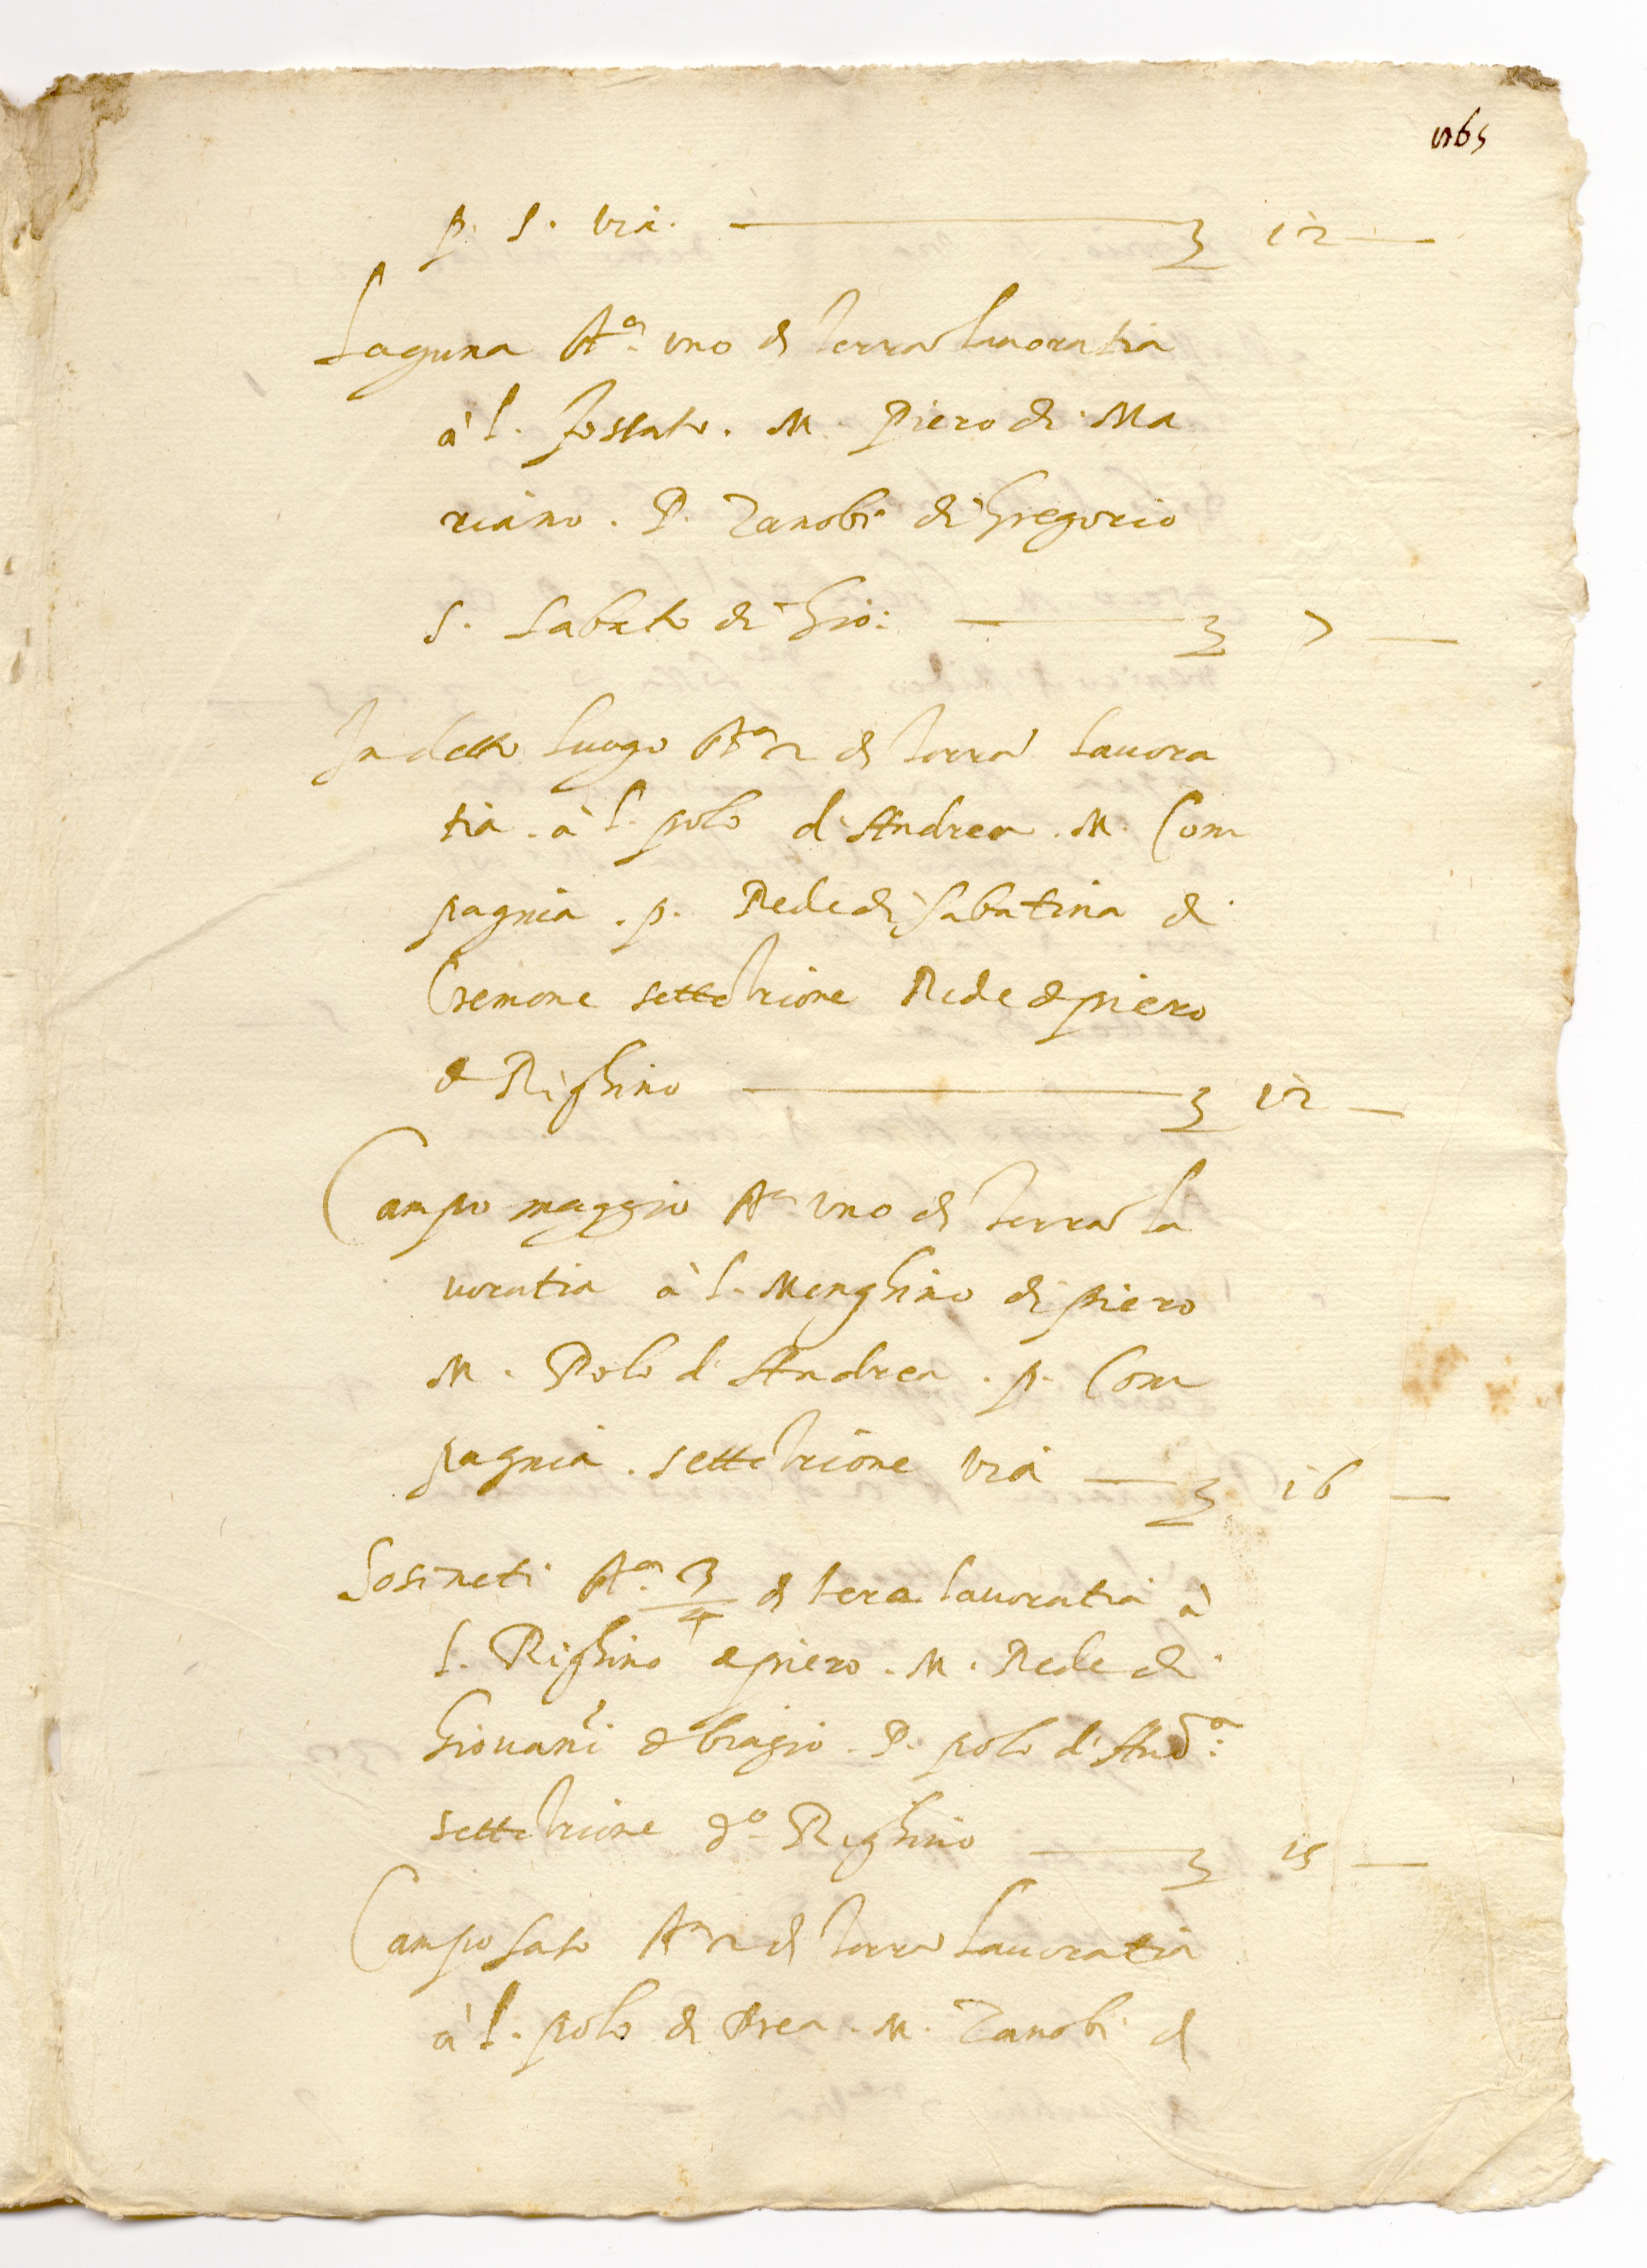 p. S. via. ——— 3 12 —
Laguna Aª. uno di terra lauoratia
à l. fossato. M. Piero di Ma
riano. P. Zanobi di Gregorio
S. Sabato di Gio: ——— 3 7 —
In detto luogo Aª 2 di terra lauora
tia. à l. polo d'Andrea. M. Com
pagnia. p. Rede di Sabatina di
Cremone settetrione Rede d piero
d Righino ——— 3 12 —
Campo maggio Aª uno di terra la
uoratia à l. Menghino di piero
M. Polo d'Andrea. p. Com
pagnia. settetrione via — 3 16 —
Sosineti Aª. 3/4 di tera lauoratia à
l. Righino d piero. M. Rede di
Giouani d biagio. P. polo d'Andª:
settetrione dº. Righino — 3 15 —
Campo lato Aª 2 di terra lauoratia
à l. polo di Drea. M. Zanobi di